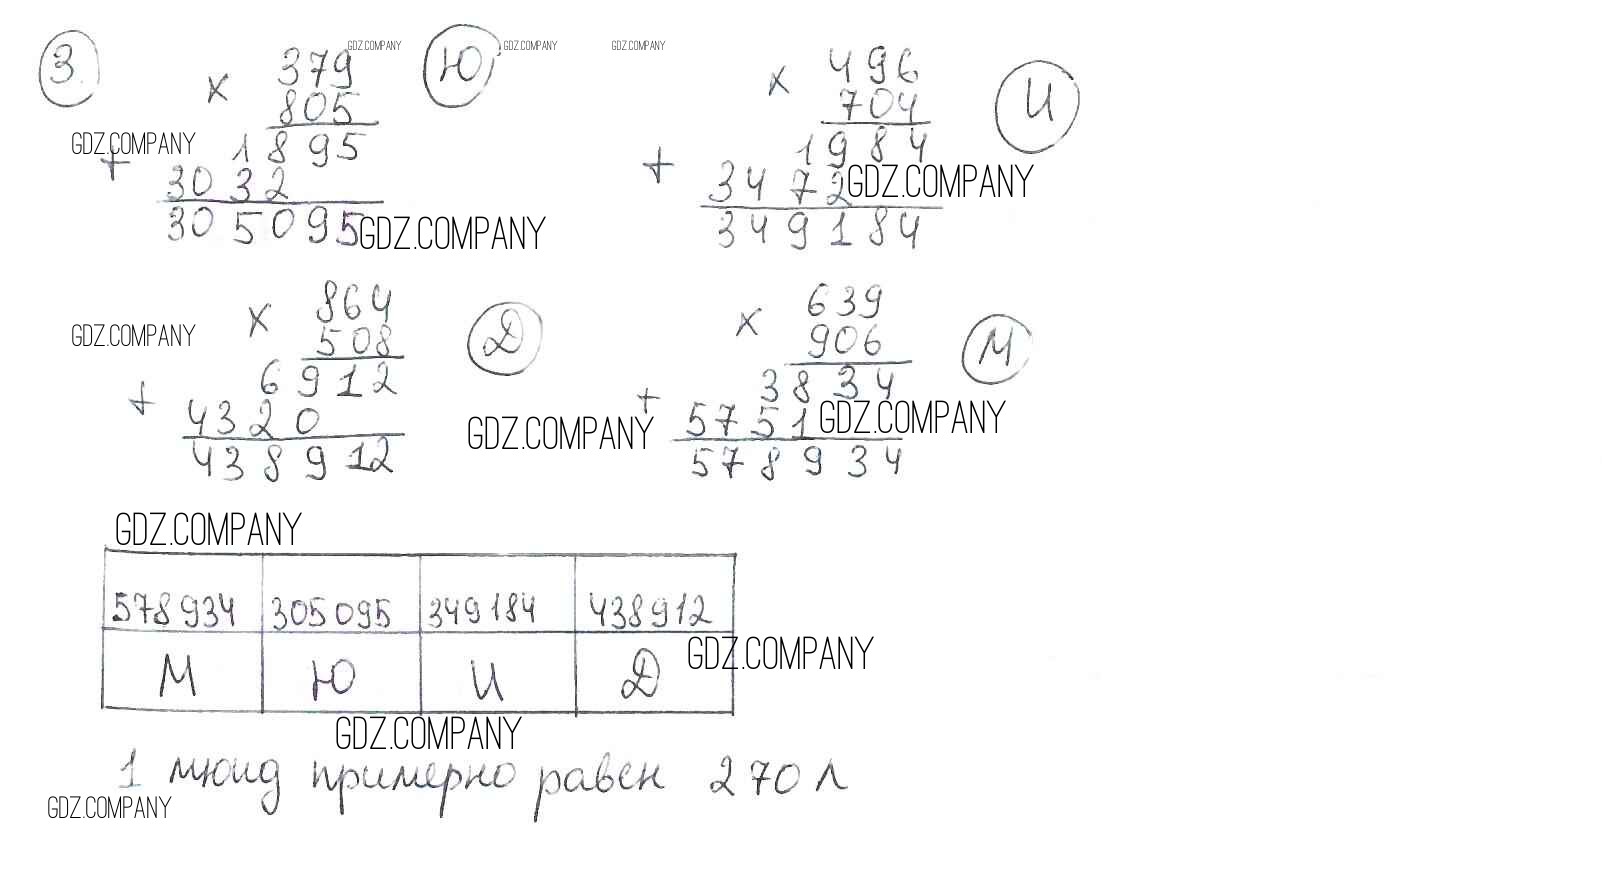 GDZ.COMPANY GDZ.COMPANY GDZ.COMPANY
3.
× 379 Ю
805
GDZ.COMPANY
1895
+
3032
305095 GDZ.COMPANY
× 496 И
704
1984
+
3472 GDZ.COMPANY
349184
× 864 Д
508
GDZ.COMPANY
6912
+
4320
438912
× 639 М
906
3834
+
5751 GDZ.COMPANY
GDZ.COMPANY
578934
GDZ.COMPANY
578934 305095 349184 438912
М Ю И Д
GDZ.COMPANY
GDZ.COMPANY
1 мюид примерно равен 270 л
GDZ.COMPANY